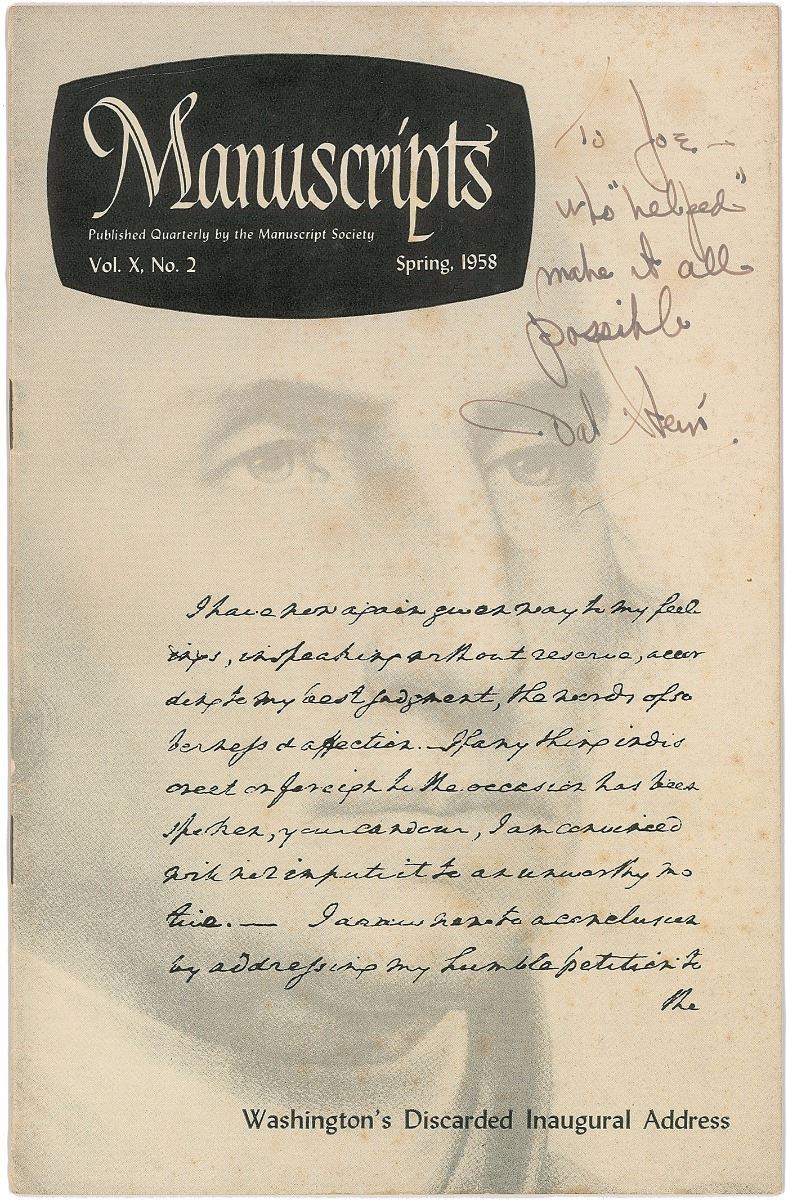 Manuscripts
Published Quarterly by the Manuscript Society
Vol. X, No. 2
Spring, 1958
To Joe —
who "helped"
make it all
possible
I have now again given way to my feel
ings, in speaking without reserve, accor
ding to my best judgment, the words of so
berness & affection. — If any thing indis
creet or foreign to the occasion has been
spoken, your candour, I am convinced
will not impute it to an unworthy mo
tive. — I draw now to a conclusion
by addressing my humble petition to
the
Washington's Discarded Inaugural Address